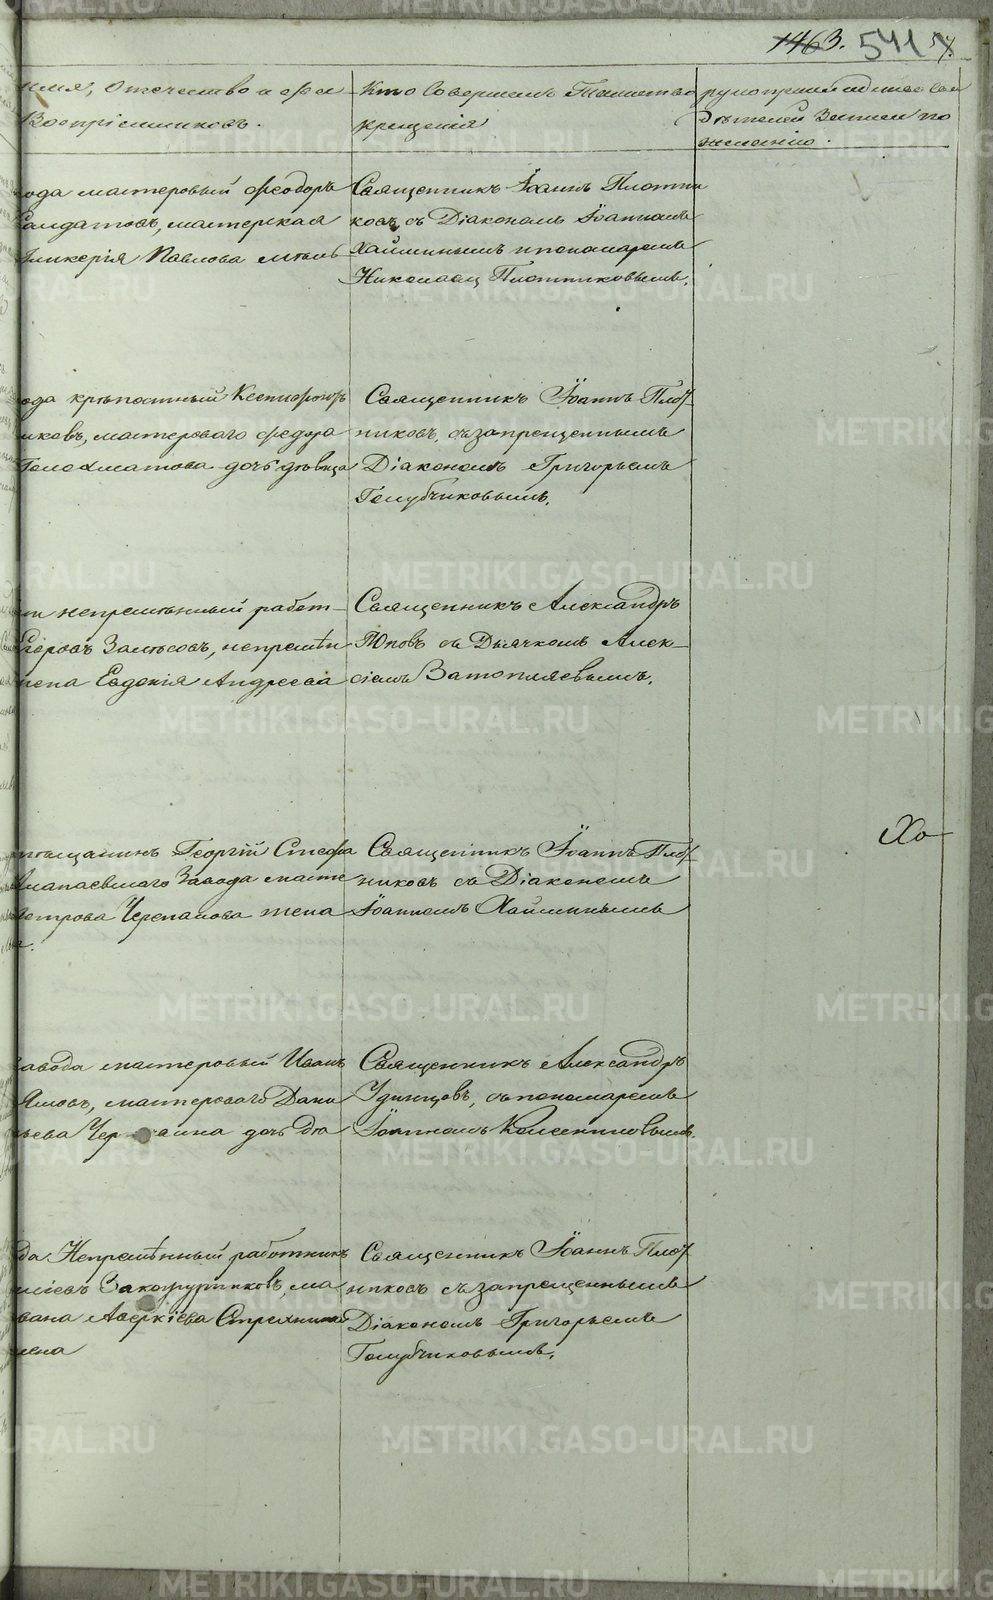 1463. 541
имя, Отечество и фа
Воспріемниковъ.
Кто Совершалъ Таинство
крещенія
рукоприкладство Сви
дѣтелей Записи по
желанію.
вода мастеровый Феодоръ
Солдатовъ, мастерская
Гликерія Павлова
Священникъ Іоаннъ Плотни
ковъ съ Діакономъ Іоанномъ
Хайминымъ и пономаремъ
Николаемъ Плотниковымъ.
вода крѣпостный Ксенофонтъ
иковъ, мастероваго Федора
дочь дѣвица
Священникъ Іоаннъ Плот
никовъ, съ запрещеннымъ
Діакономъ Григорьемъ
Голубчиковымъ.
непремѣнный работ
Егоровъ непремѣн
жена Евдокія Андреева
Священникъ Александръ
Поповъ съ Дьячкомъ Алек
сіемъ Затопляевымъ.
Георгій Стефа
Алапаевскаго Завода масте
Петрова Черепанова жена
Священникъ Іоаннъ Плот
никовъ съ Діакономъ
Іоанномъ Хайминымъ
Хо
завода мастеровый Иванъ
мастероваго Дани
дочь дѣ
Священникъ Александръ
Удинцовъ, съ пономаремъ
Іоанномъ
да Непремѣнный работникъ
ма
вана Аверкіева
жена
Священникъ Іоаннъ Плот
никовъ съ запрещеннымъ
Діакономъ Григорьемъ
Голубчиковымъ.
METRIKI.GASO-URAL.RU